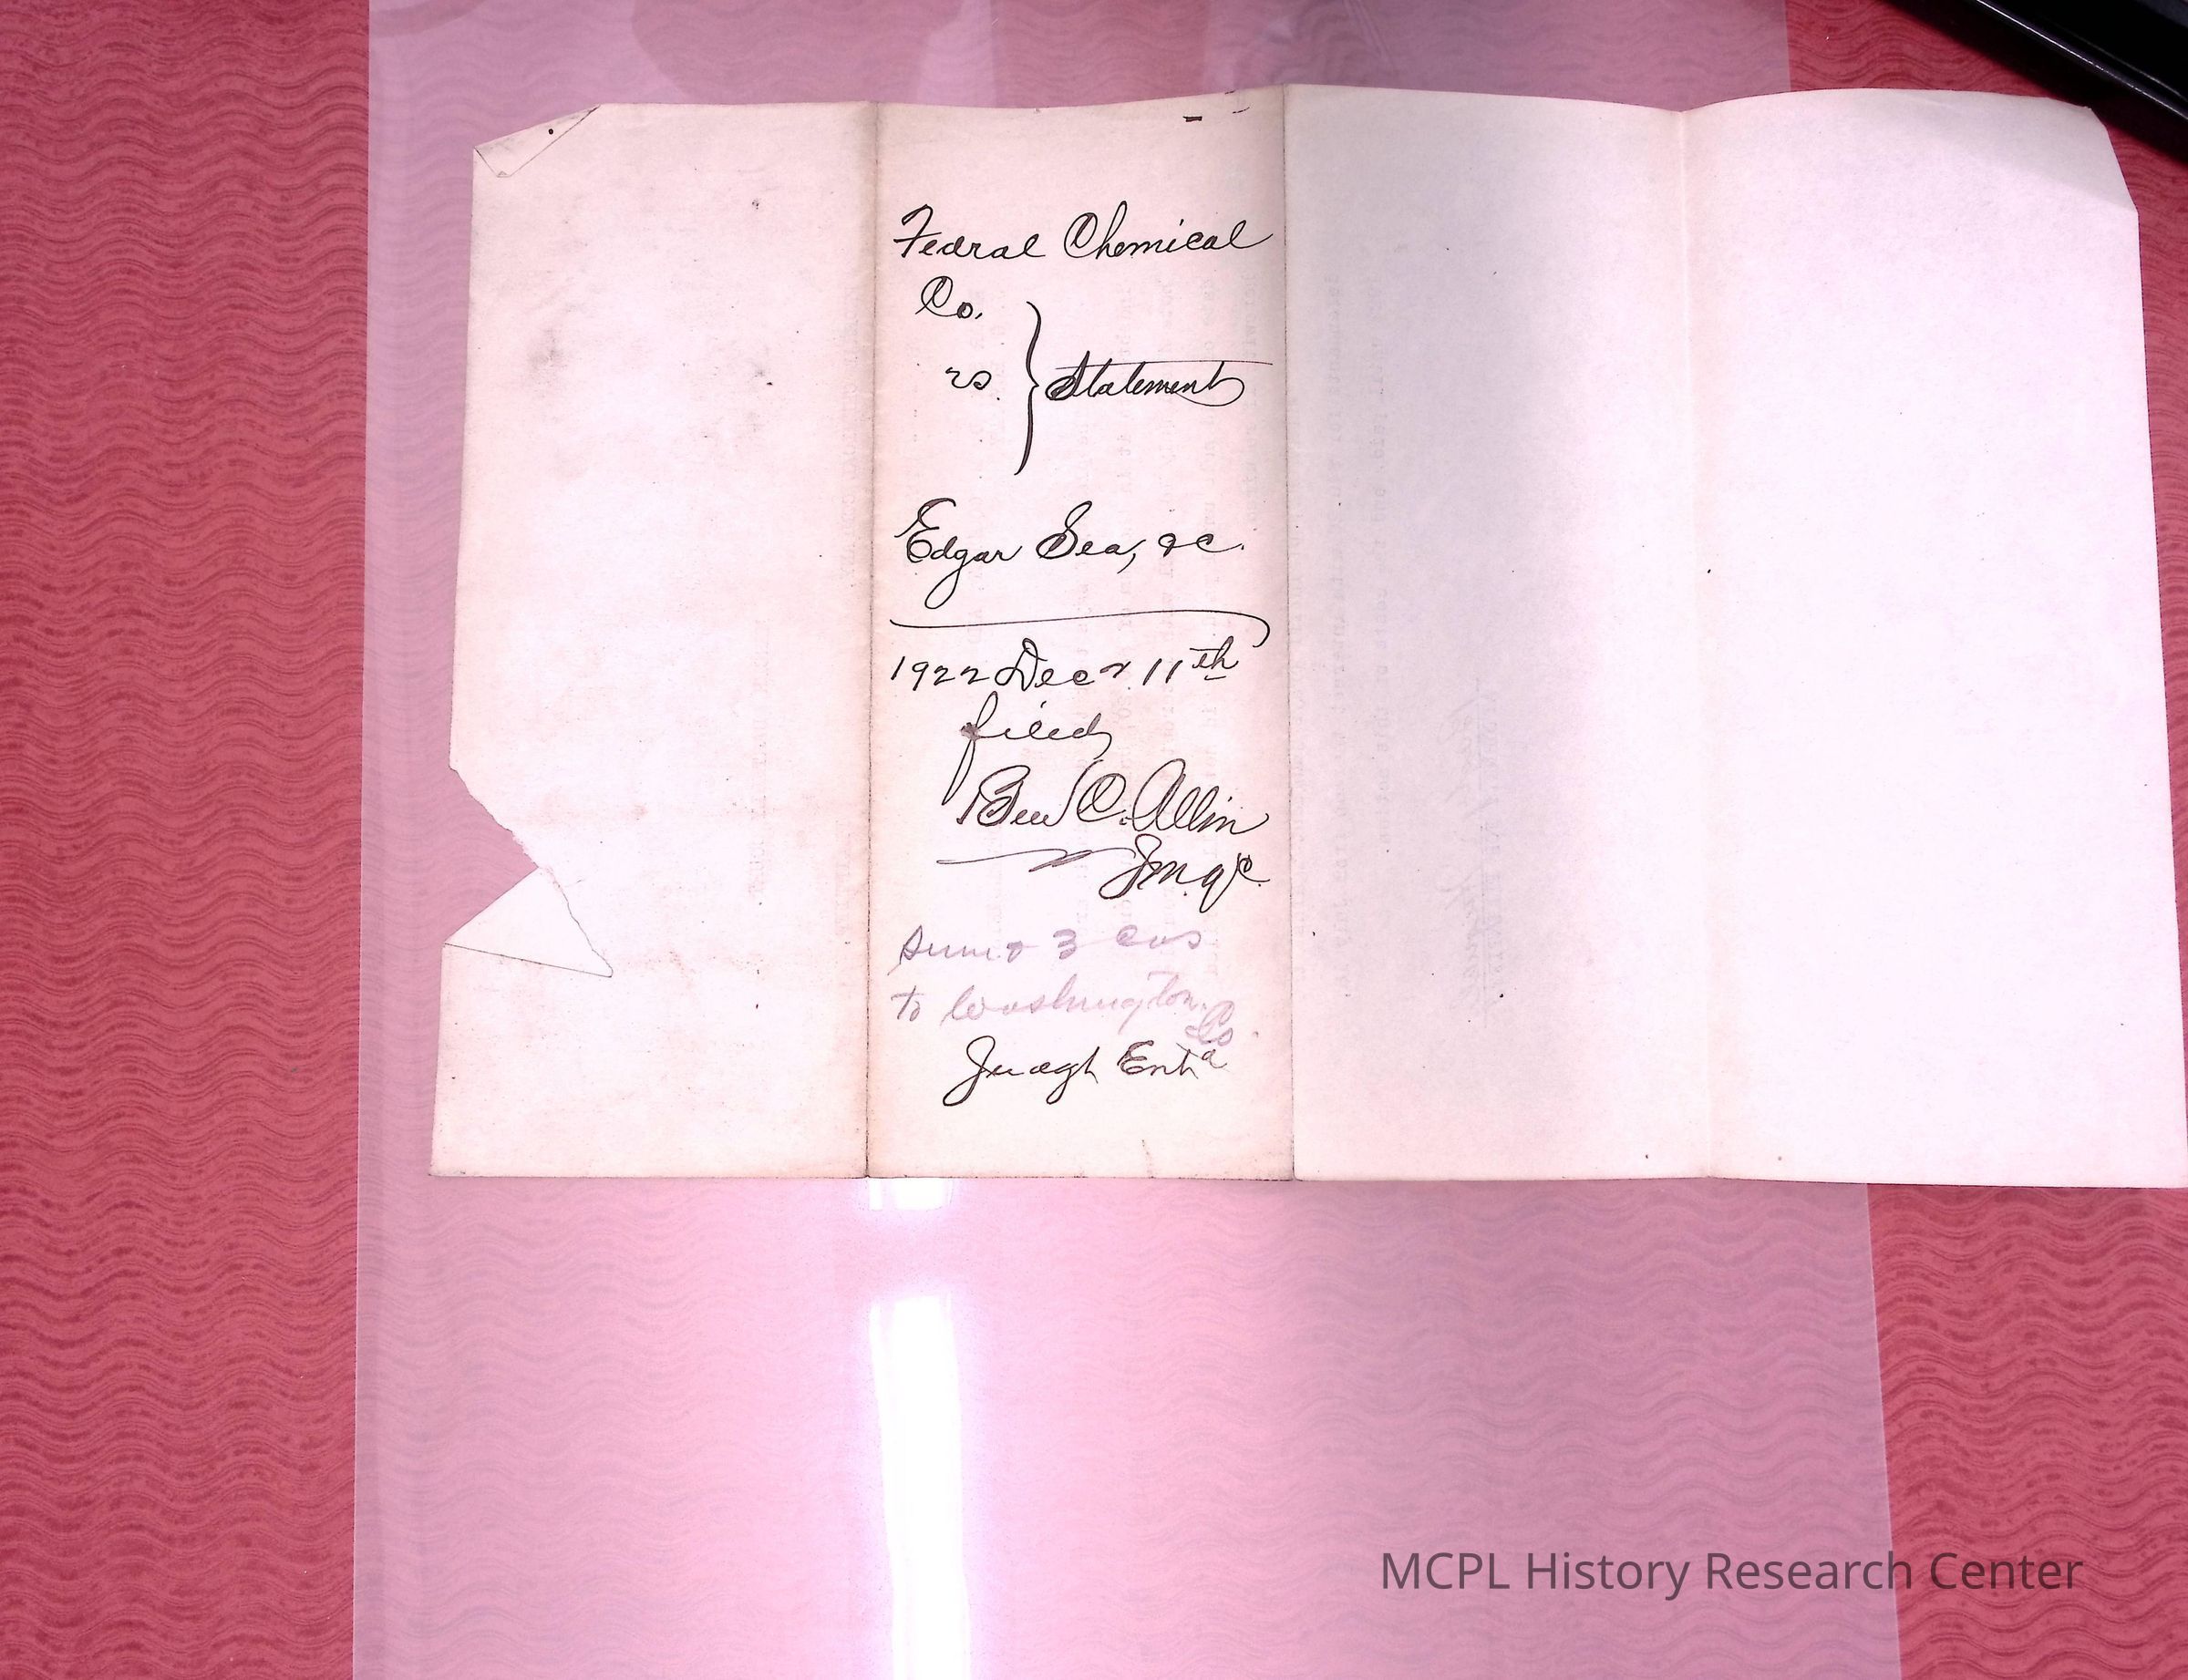 Fedral Chemical
Co.
vs. } Statement
Edgar Sea, &c.
1922 Decr. 11th
filed
Ben C. Allin
J.M.C.
Sums 3 cos
to Washington
Co.
Judgt Entd
MCPL History Research Center